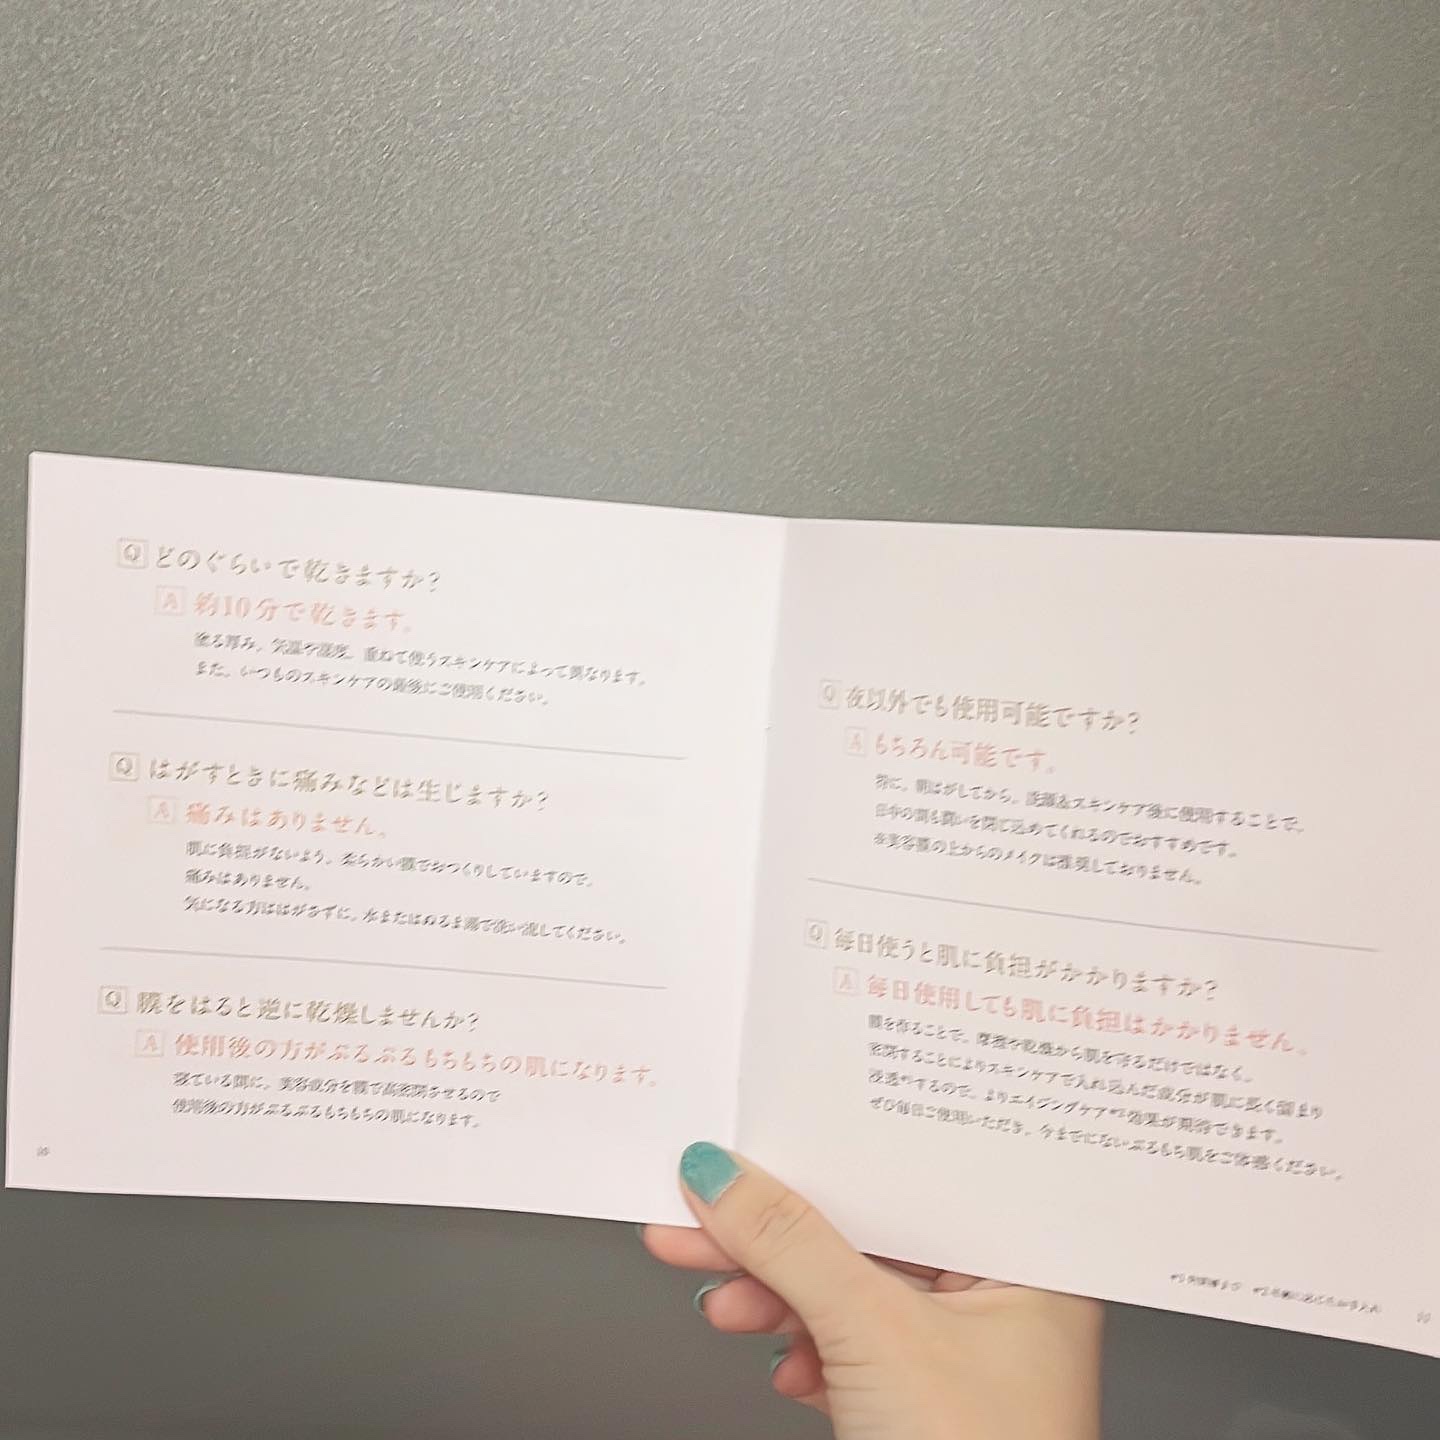 Q どのぐらいで乾きますか?
A 約10分で乾きます。
塗る厚み、気温や湿度、重ねて使うスキンケアによって異なります。
また、いつものスキンケアの最後にご使用ください。
Q はがすときに痛みなどは生じますか?
A 痛みはありません。
肌に負担がないよう、柔らかい膜でおつくりしていますので、
痛みはありません。
気になる方ははがさずに、水またはぬるま湯で洗い流してください。
Q 膜をはると逆に乾燥しませんか?
A 使用後の方がぷるぷるもちもちの肌になります。
寝ている間に、美容成分を膜で高密閉させるので
使用後の方がぷるぷるもちもちの肌になります。
Q 夜以外でも使用可能ですか?
A もちろん可能です。
特に、朝はがしてから、洗顔&スキンケア後に使用することで、
日中の間も潤いを閉じ込めてくれるのでおすすめです。
※美容膜の上からのメイクは推奨しておりません。
Q 毎日使うと肌に負担がかかりますか?
A 毎日使用しても肌に負担はかかりません。
膜を作ることで、摩擦や乾燥から肌を守るだけではなく、
密閉することによりスキンケアで入れ込んだ成分が肌に長く留まり
浸透*1するので、よりエイジングケア*2効果が期待できます。
ぜひ毎日ご使用いただき、今までにないぷるもち肌をご体感ください。
*1 角質層まで *2 年齢に応じたお手入れ